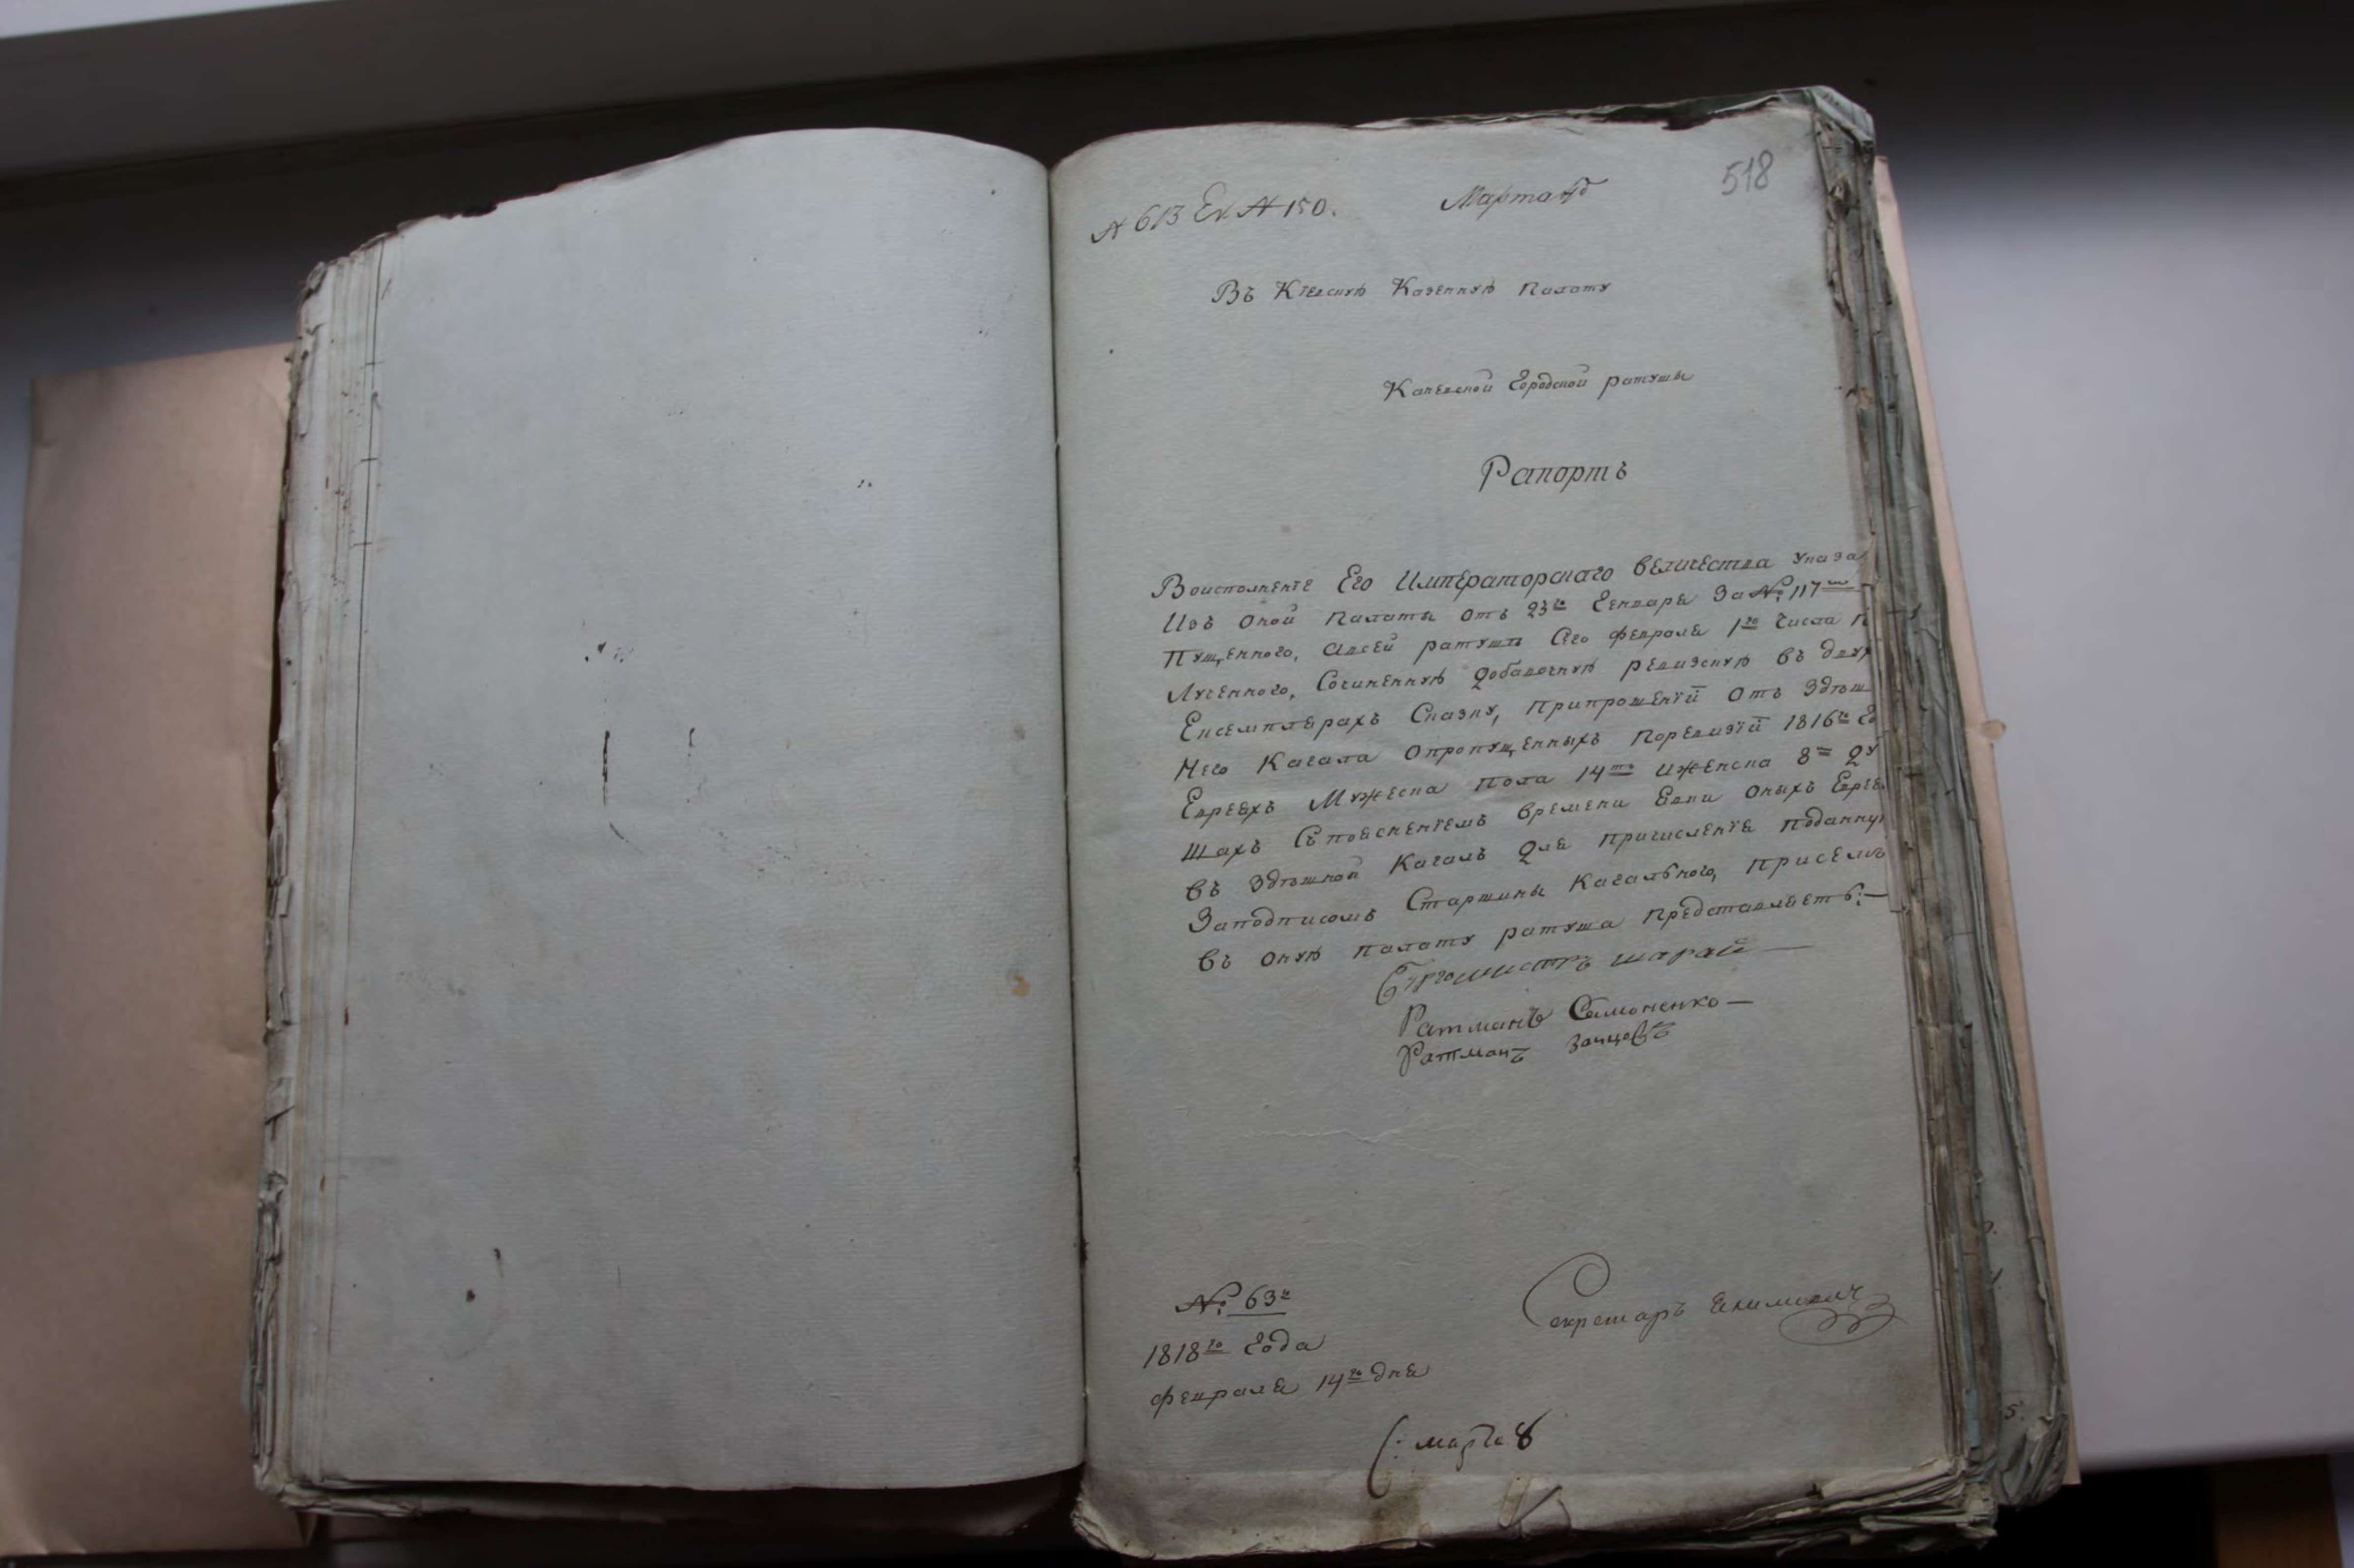 518
№ 613 Ex № 150. Марта
Въ Кіевскую Казенную Палату
Каневской Городской ратуши
Рапортъ
Воисполненіе Его Императорскаго величества Указа
Изъ Оной Палаты Отъ 23го Генваря За №: 117мъ
Пущенного, Авсей ратуши Сего февраля 1го Числа П
Лученного, Сочиненную Добавочную ревизскую въ двух
Ексемплярахъ Сказку, Припрошеніи Отъ Здѣш
Него Кагала Опропущенныхъ Поревизіи 1816го Го
Евреяхъ Мужеска Пола 14ть Иженска 8мь Ду
Шахъ Споясненіемъ Времени Явки Оныхъ Еврее
Въ Здѣшной Кагалъ Для Причисленія Поданну
Заподписомъ Старшины Кагального, Присемъ
Въ Оную Палату ратуша Представляетъ:—
Бургомистръ Шарай —
Ратманъ Самоненко —
Ратманъ Зайцовъ
№: 63й
1818го Года
февраля 14го Дня
Секретарь Якимович
марта 8